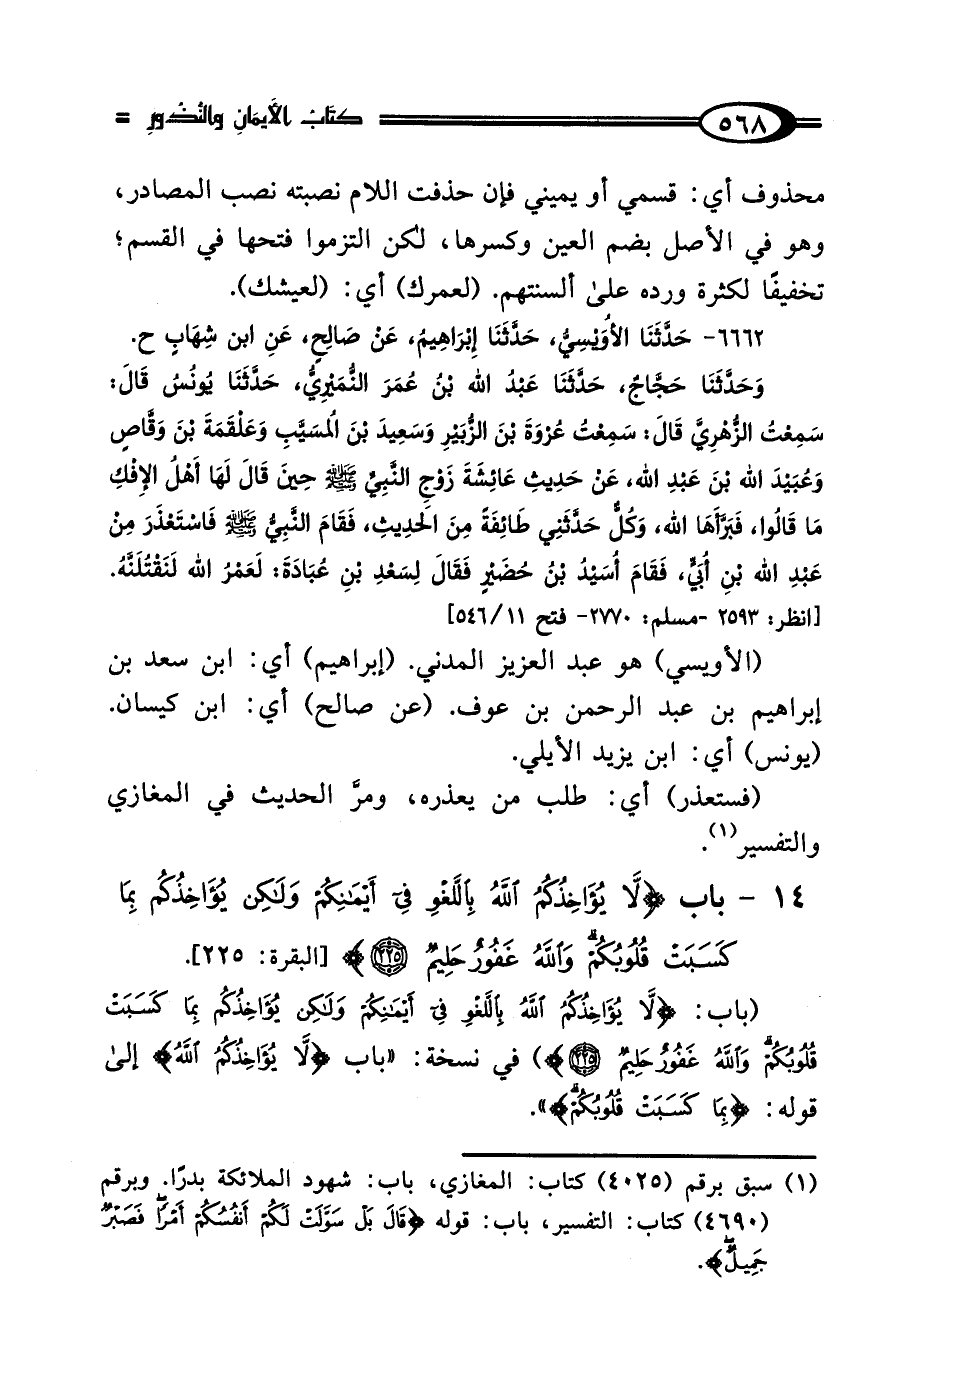 ٥٦٨ كتاب الأيمان والنذور =
محذوف أي: قسمي أو يميني فإن حذفت اللام نصبته نصب المصادر،
وهو في الأصل بضم العين وكسرها، لكن التزموا فتحها في القسم؛
تخفيفًا لكثرة ورده علىٰ ألسنتهم. (لعمرك) أي: (لعيشك).
٦٦٦٢- حَدَّثَنَا الأُوَيْسِيُّ، حَدَّثَنَا إِبْرَاهِيمُ، عَنْ صَالِحٍ، عَنِ ابن شِهَابٍ ح.
وَحَدَّثَنَا حَجَّاجٌ، حَدَّثَنَا عَبْدُ الله بْنُ عُمَرَ النُّمَيْرِيُّ، حَدَّثَنَا يُونُسُ قَالَ:
سَمِعْتُ الزُّهْرِيَّ قَالَ: سَمِعْتُ عُرْوَةَ بْنَ الزُّبَيْرِ وَسَعِيدَ بْنَ الْمُسَيَّبِ وَعَلْقَمَةَ بْنَ وَقَّاصٍ
وَعُبَيْدَ الله بْنَ عَبْدِ الله، عَنْ حَدِيثِ عَائِشَةَ زَوْجِ النَّبِيِّ ﷺ حِينَ قَالَ لَهَا أَهْلُ الإِفْكِ
مَا قَالُوا، فَبَرَّأَهَا الله، وَكُلٌّ حَدَّثَنِي طَائِفَةً مِنَ الْحَدِيثِ، فَقَامَ النَّبِيُّ ﷺ فَاسْتَعْذَرَ مِنْ
عَبْدِ الله بْنِ أُبَيٍّ، فَقَامَ أُسَيْدُ بْنُ حُضَيْرٍ فَقَالَ لِسَعْدِ بْنِ عُبَادَةَ: لَعَمْرُ الله لَنَقْتُلَنَّهُ.
[انظر: ٢٥٩٣ -مسلم: ٢٧٧٠- فتح ١١/٥٤٦]
(الأويسي) هو عبد العزيز المدني. (إبراهيم) أي: ابن سعد بن
إبراهيم بن عبد الرحمن بن عوف. (عن صالح) أي: ابن كيسان.
(يونس) أي: ابن يزيد الأيلي.
(فستعذر) أي: طلب من يعذره، ومرَّ الحديث في المغازي
والتفسير(١).
١٤ - باب ﴿لَّا يُؤَاخِذُكُمُ ٱللَّهُ بِٱللَّغْوِ فِىٓ أَيْمَـٰنِكُمْ وَلَـٰكِن يُؤَاخِذُكُم بِمَا
كَسَبَتْ قُلُوبُكُمْ ۗ وَٱللَّهُ غَفُورٌ حَلِيمٌ ٢٢٥﴾ [البقرة: ٢٢٥].
(باب: ﴿لَّا يُؤَاخِذُكُمُ ٱللَّهُ بِٱللَّغْوِ فِىٓ أَيْمَـٰنِكُمْ وَلَـٰكِن يُؤَاخِذُكُم بِمَا كَسَبَتْ
قُلُوبُكُمْ ۗ وَٱللَّهُ غَفُورٌ حَلِيمٌ ٢٢٥﴾) في نسخة: «باب ﴿لَّا يُؤَاخِذُكُمُ ٱللَّهُ﴾ إلىٰ
قوله: ﴿بِمَا كَسَبَتْ قُلُوبُكُمْ ۗ﴾».
(١) سبق برقم (٤٠٢٥) كتاب: المغازي، باب: شهود الملائكة بدرًا. وبرقم
(٤٦٩٠) كتاب: التفسير، باب: قوله ﴿قَالَ بَلْ سَوَّلَتْ لَكُمْ أَنفُسُكُمْ أَمْرًا ۖ فَصَبْرٌ
جَمِيلٌ ۖ﴾.